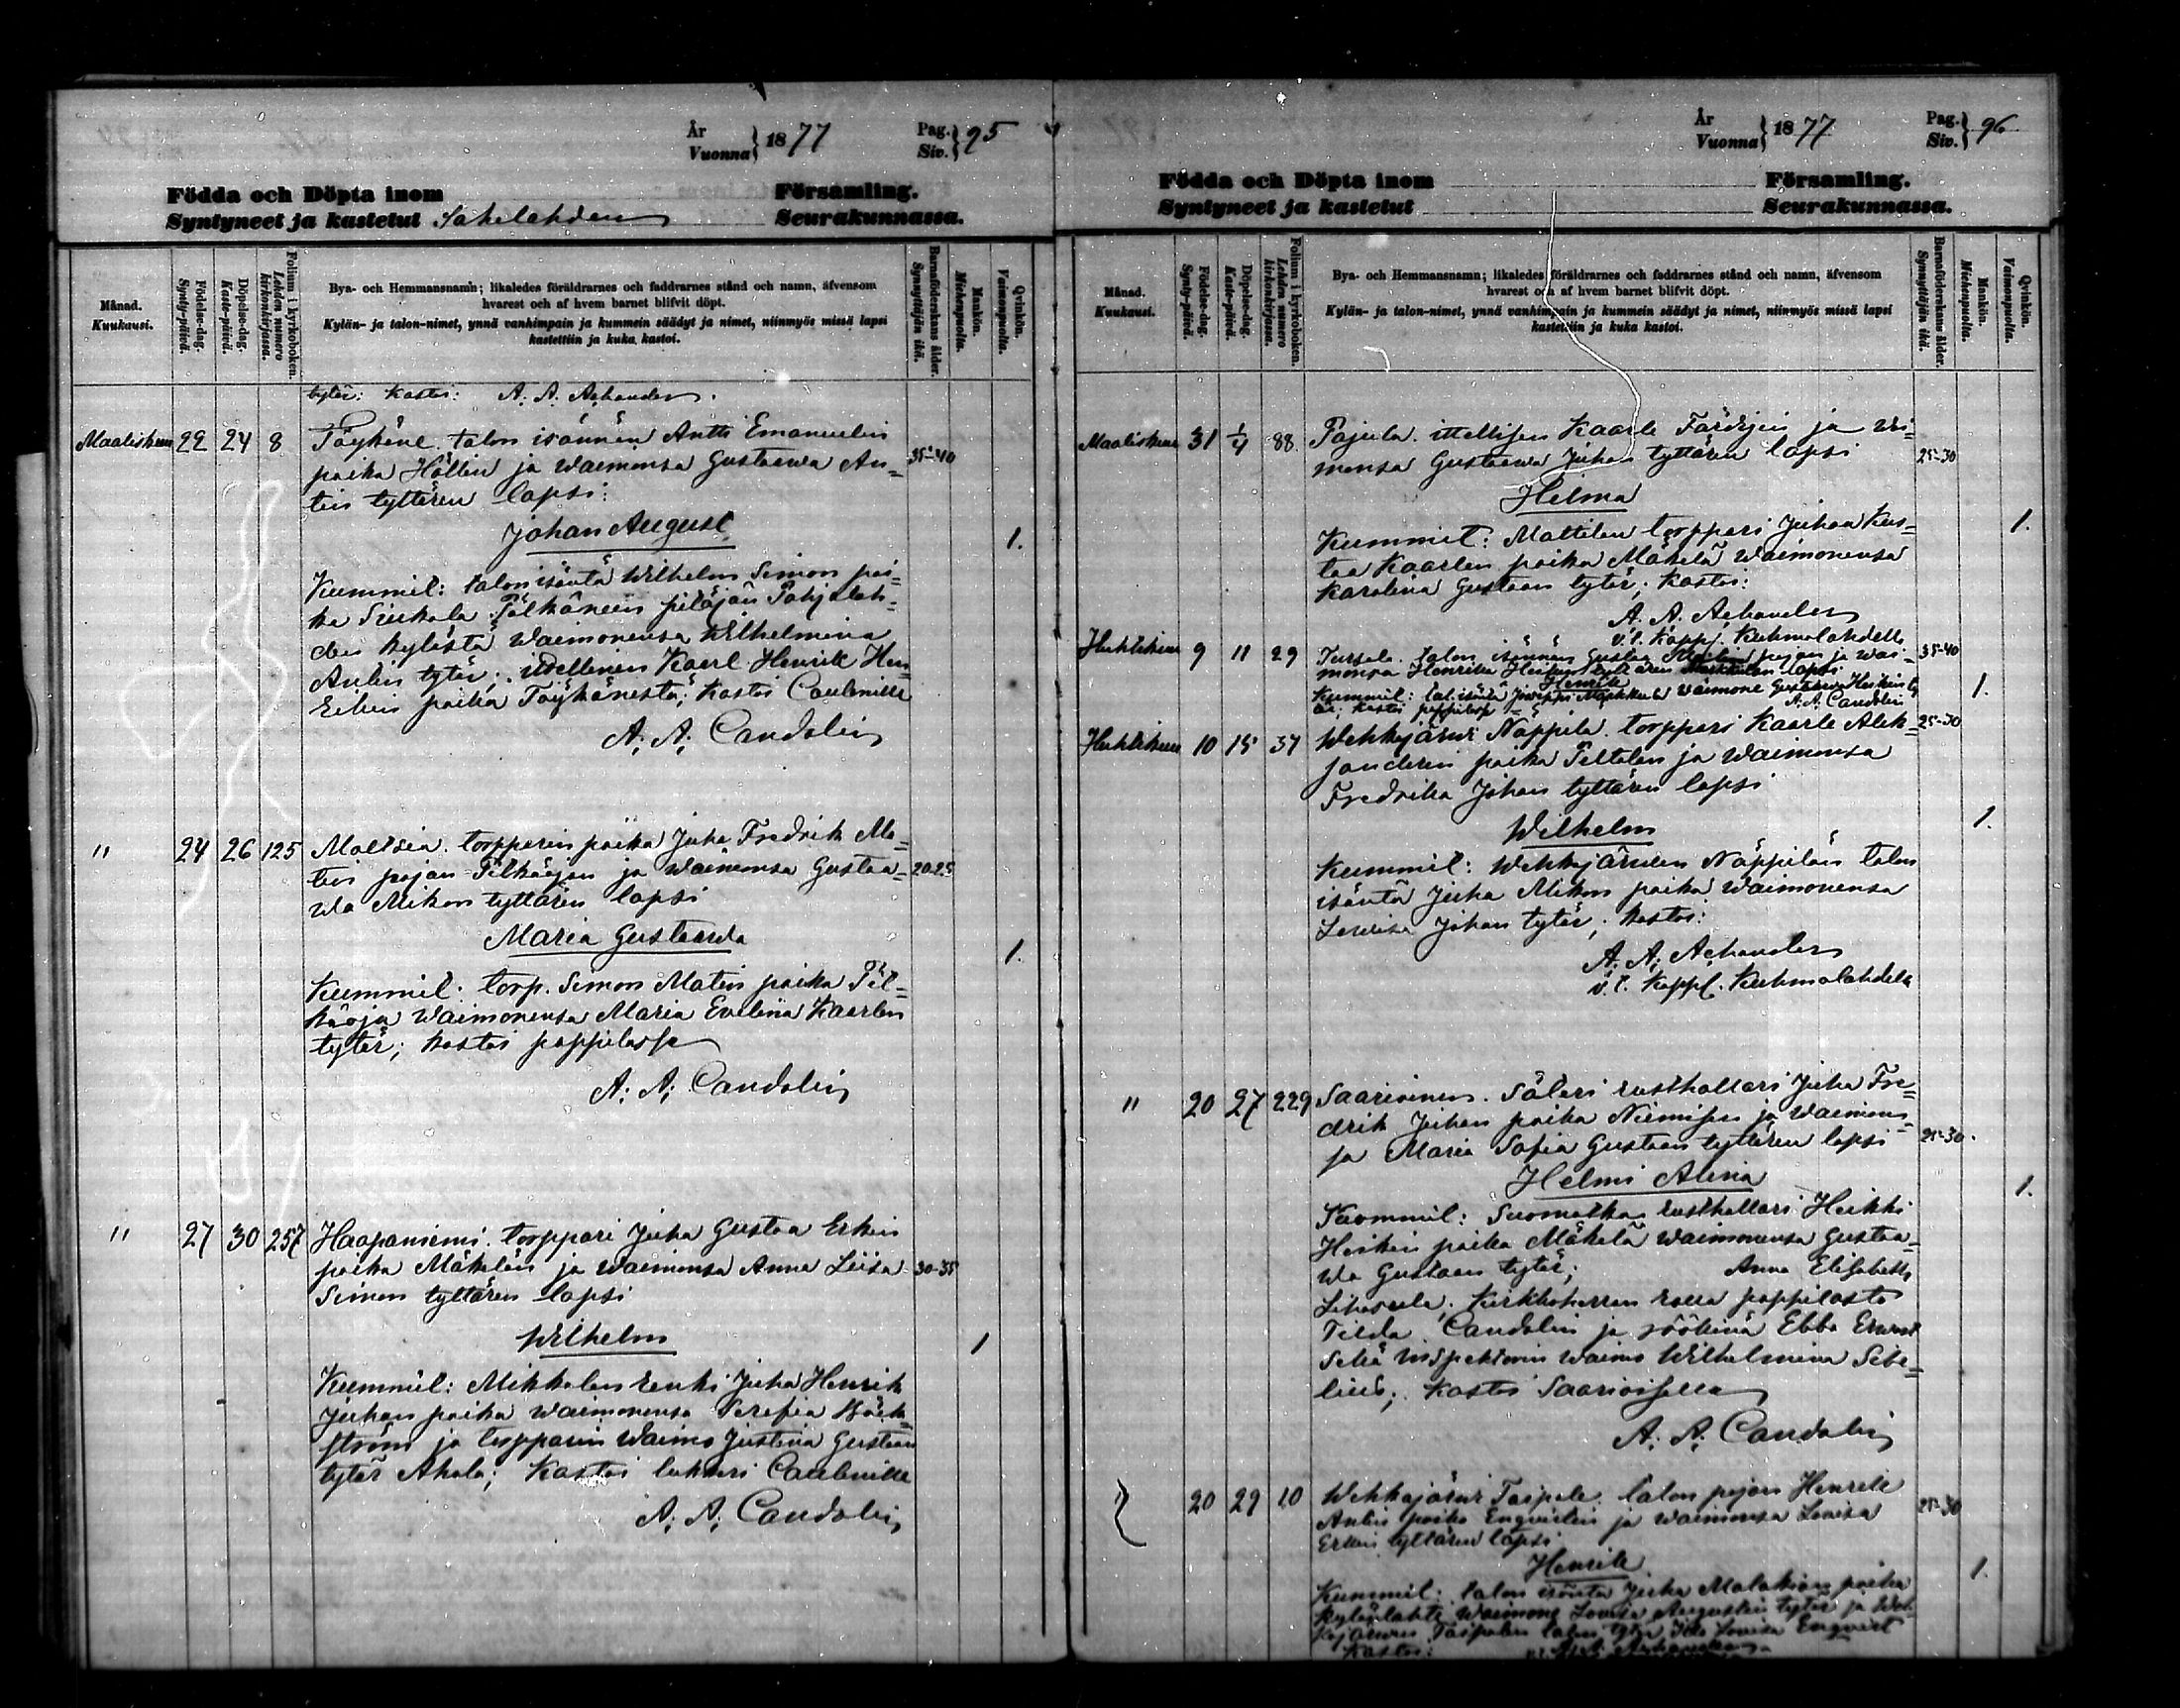 År
Vuonna } 1877
Pag.
Siv. } 95
Födda och Döpta inom Församling.
Syntyneet ja kastetut Sahalahden Seurakunnassa.
Månad.
Kuukausi.
Födelse-dag.
Synty-päivä.
Döpelse-dag.
Kaste-päivä.
Folium i kyrkoboken.
Lehden numero kirkonkirjassa.
Bya- och Hemmansnamn; likaledes föräldrarnes och faddrarnes stånd och namn, äfvensom
hvarest och af hvem barnet blifvit döpt.
Kylän- ja talon-nimet, ynnä vanhimpain ja kummein säädyt ja nimet, niinmyös missä lapsi
kastettiin ja kuka kastoi.
Barnaföderskans ålder.
Synnyttäjän ikä.
Mankön.
Miehenpuolta.
Qvinkön.
Vaimonpuolta.
tytär: Kastoi: A. A. Achander
Maaliskuu 22 24 8 Töykäne. talon isännän Antti Emanuelin
poika Hollin ja waimonsa Gustaawa An= 35-40
tin tyttären lapsi:
Johan August
1.
Kummit: talon isäntä Wilhelm Simon poi=
ka Sinkala Pälkäneen pitäjän Pohjalah=
den kylästä waimonensa Wilhelmina
Antin tytär; itsellinen Kaarl Henrik Hen
Erkin poika Töykänestä; Kastoi
A. A. Candolin
" 24 26 125 Moltsia. torpparin poika Juha Fredrik Ma=
tin pojan Pilkäojan ja waimonsa Gustaa= 20-25
wa Mikon tyttären lapsi
Maria Gustaawa
1.
Kummit: torp. Simon Matin poika Pil=
käoja waimonensa Maria Evelina Kaarlen
tytär; kastoi pappilassa
A. A. Candolin
" 27 30 257 Haapaniemi. torppari Juha Gustaa Erkin
poika Mäkelän ja waimonsa Anna Liisa 30-35
Simon tyttären lapsi
Wilhelm
1
Kummit: Mikkolan renki Juha Henrik
Juhan poika waimonensa Serafia Bäck=
ström ja torpparin waimo Justina Gustaan
tytär Ahola; Kastoi lukkari
A. A. Candolin
År
Vuonna } 1877
Pag.
Siv. } 96
Födda och Döpta inom Församling.
Syntyneet ja kastetut Seurakunnassa.
Månad.
Kuukausi.
Födelse-dag.
Synty-päivä.
Döpelse-dag.
Kaste-päivä.
Folium i kyrkoboken.
Lehden numero kirkonkirjassa.
Bya- och Hemmansnamn; likaledes föräldrarnes och faddrarnes stånd och namn, äfvensom
hvarest och af hvem barnet blifvit döpt.
Kylän- ja talon-nimet, ynnä vanhimpain ja kummein säädyt ja nimet, niinmyös missä lapsi
kastettiin ja kuka kastoi.
Barnaföderskans ålder.
Synnyttäjän ikä.
Mankön.
Miehenpuolta.
Qvinkön.
Vaimonpuolta.
Maaliskuu 31 1/4 88. Pajula. ittellisen Kaarle Färdigin ja wai=
monsa Gustaawa Juhan tyttären lapsi 25-30
Helma
1.
Kummit: Mattilan torppari Juhan Kus=
taa Kaarlen poika Mäkelä waimonensa
Karolina Gustaan tytär; Kastoi:
A. A. Achander
v.t. Kappl. Kuhmalahdella
Huhtikuu 9 11 29 Tursola. talon isännän Gustaa pojan ja wai= 35-40
monsa Henrika Heikin tyttären lapsi
Henrik
1.
Kummit: tal. isäntä Markkula waimone Gustaawa Heikin ty
tär; Kastoi pappilassa A. A. Candolin
Huhtikuu 10 15 37 Wehkajärwi Näppilä. torppari Kaarle Alek= 25-30
sanderin poika Peltolan ja waimonsa
Fredrika Johan tyttären lapsi
Wilhelm
1.
Kummit: Wehkajärwen Näppilän talon
isäntä Juha Mikon poika waimonensa
Lowisa Johan tytär; kastoi:
A. A. Achander
v.t. Kappl. Kuhmalahdella
" 20 27 229 Saarioinen. Säteri rusthollari Juha Fre=
drik Juhan poika Niemisen ja waimon=
sa Maria Sofia Gustaan tyttären lapsi 25-30.
Helmi Alina
1.
Kummit: Suomatka rusthollari Heikki
Heikin poika Mäkelä waimonensa Gustaa=
wa Gustaan tytär; Anna Elisabeth
Kirkkoherran rouva pappilasta
Tilda Candolin ja röökinä Ebba
Sekä inspehtorin waimo Wilhelmina Sibe=
lius; Kastoi Saarioisella
A. A. Candolin
20 29 10 Wehkajärwi Taipale. talon pojan Henrik
Antin poika Enqvistin ja waimonsa Lowisa 25-30
Erkin tyttären lapsi
Henrik
1.
Kummit: talon isäntä Juha Malakian poika
waimone Lowisa Augustin tytär ja Weh=
kajärwen Taipaleen talon tytär Ida Lowisa Enqvist
Kastoi: A. A. Achander